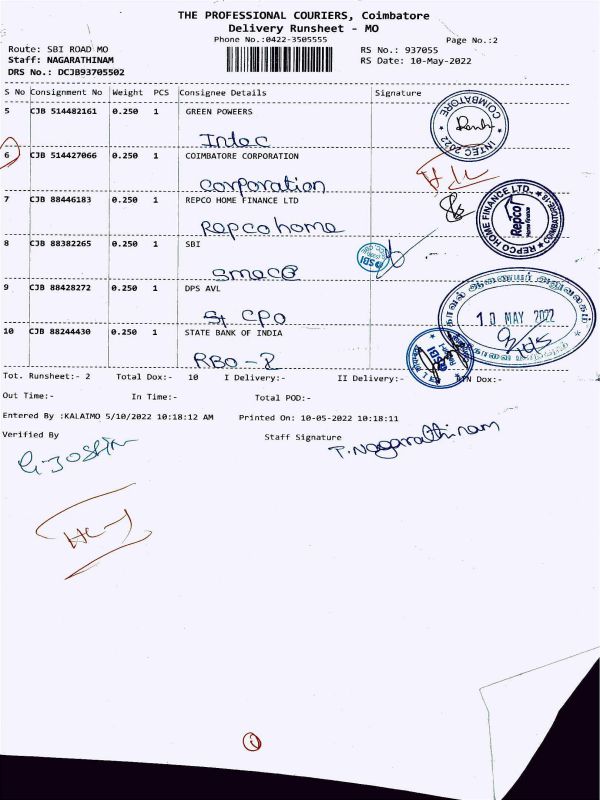 THE PROFESSIONAL COURIERS, Coimbatore
Delivery Runsheet - MO
Phone No.:0422-3505555
Page No.:2
Route: SBI ROAD MO
RS No.: 937055
Staff: NAGARATHINAM
RS Date: 10-May-2022
DRS No.: DCJB93705502
S No Consignment No Weight PCS Consignee Details Signature
5 CJB 514482161 0.250 1 GREEN POWEERS
Intec
COIMBATORE
INTEC 2022
6 CJB 514427066 0.250 1 COIMBATORE CORPORATION
Corporation
7 CJB 88446183 0.250 1 REPCO HOME FINANCE LTD
Repco home
REPCO HOME FINANCE LTD.
Repco
Home Finance
COIMBATORE-18
8 CJB 88382265 0.250 1 SBI
SMECC
SBI
9 CJB 88428272 0.250 1 DPS AVL
St CPO
காவல் ஆணையர் அலுவலகம்
10 MAY 2022
10 CJB 88244430 0.250 1 STATE BANK OF INDIA
RBO-2
SBI
Tot. Runsheet:- 2 Total Dox:- 10 I Delivery:- II Delivery:- Dox:-
Out Time:- In Time:- Total POD:-
Entered By :KALAIMO 5/10/2022 10:18:12 AM Printed On: 10-05-2022 10:18:11
Verified By Staff Signature
T. Nagarathinam